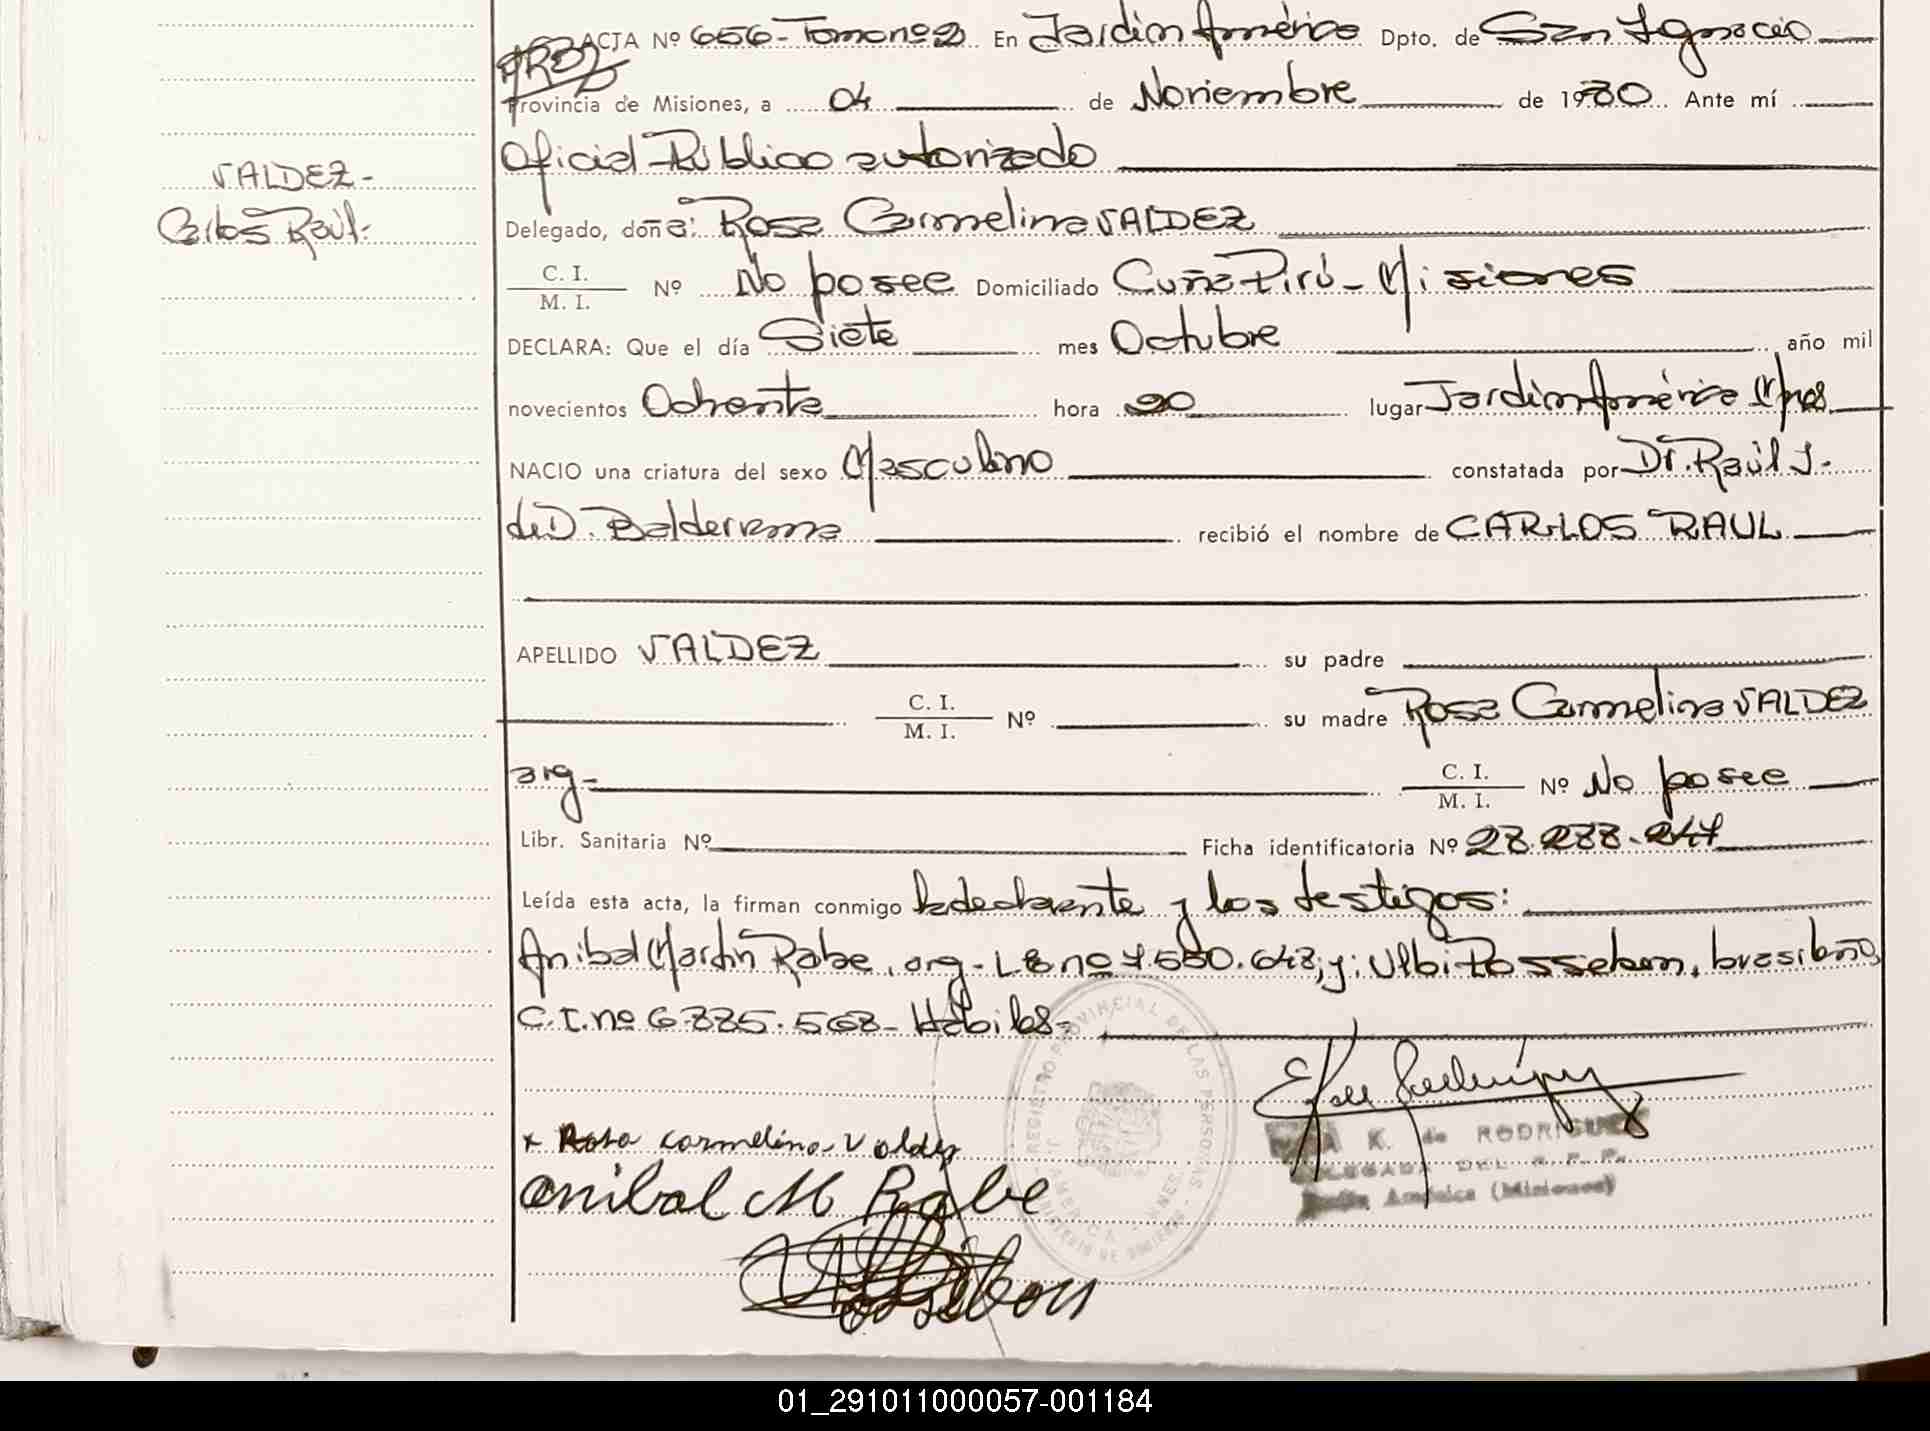 ACTA Nº 656-Tomo nº2 En Jardín América Dpto. de San Ignacio
Provincia de Misiones, a 04 de Noviembre de 1980 Ante mí
Oficial Público autorizado
VALDEZ-
Carlos Raúl.
Delegado, doña: Rosa Carmelina VALDEZ
C. I.
M. I. Nº No posee Domiciliado Cuña Pirú - Misiones
DECLARA: Que el día Siete mes Octubre año mil
novecientos Ochenta hora 20 lugar Jardín América Mnes
NACIO una criatura del sexo Masculino constatada por Dr. Raúl J.
de D. Balderrama recibió el nombre de CARLOS RAUL
APELLIDO VALDEZ su padre
C. I.
M. I. Nº su madre Rosa Carmelina VALDEZ
arg-
C. I.
M. I. Nº No posee
Libr. Sanitaria Nº Ficha identificatoria Nº 28.288.247
Leída esta acta, la firman conmigo la declarante y los testigos:
Anibal Martin Rabe, arg- LE nº 7.550.648, y: Ulbi Possebon, brasileño,
C.I. nº 6.885.568- Hábiles-
REGISTRO PROVINCIAL DE LAS PERSONAS
x Rosa Carmelina Valdez
K. de RODRIGUEZ
DEL R. P. P.
América (Misiones)
Anibal M Rabe
01_291011000057-001184